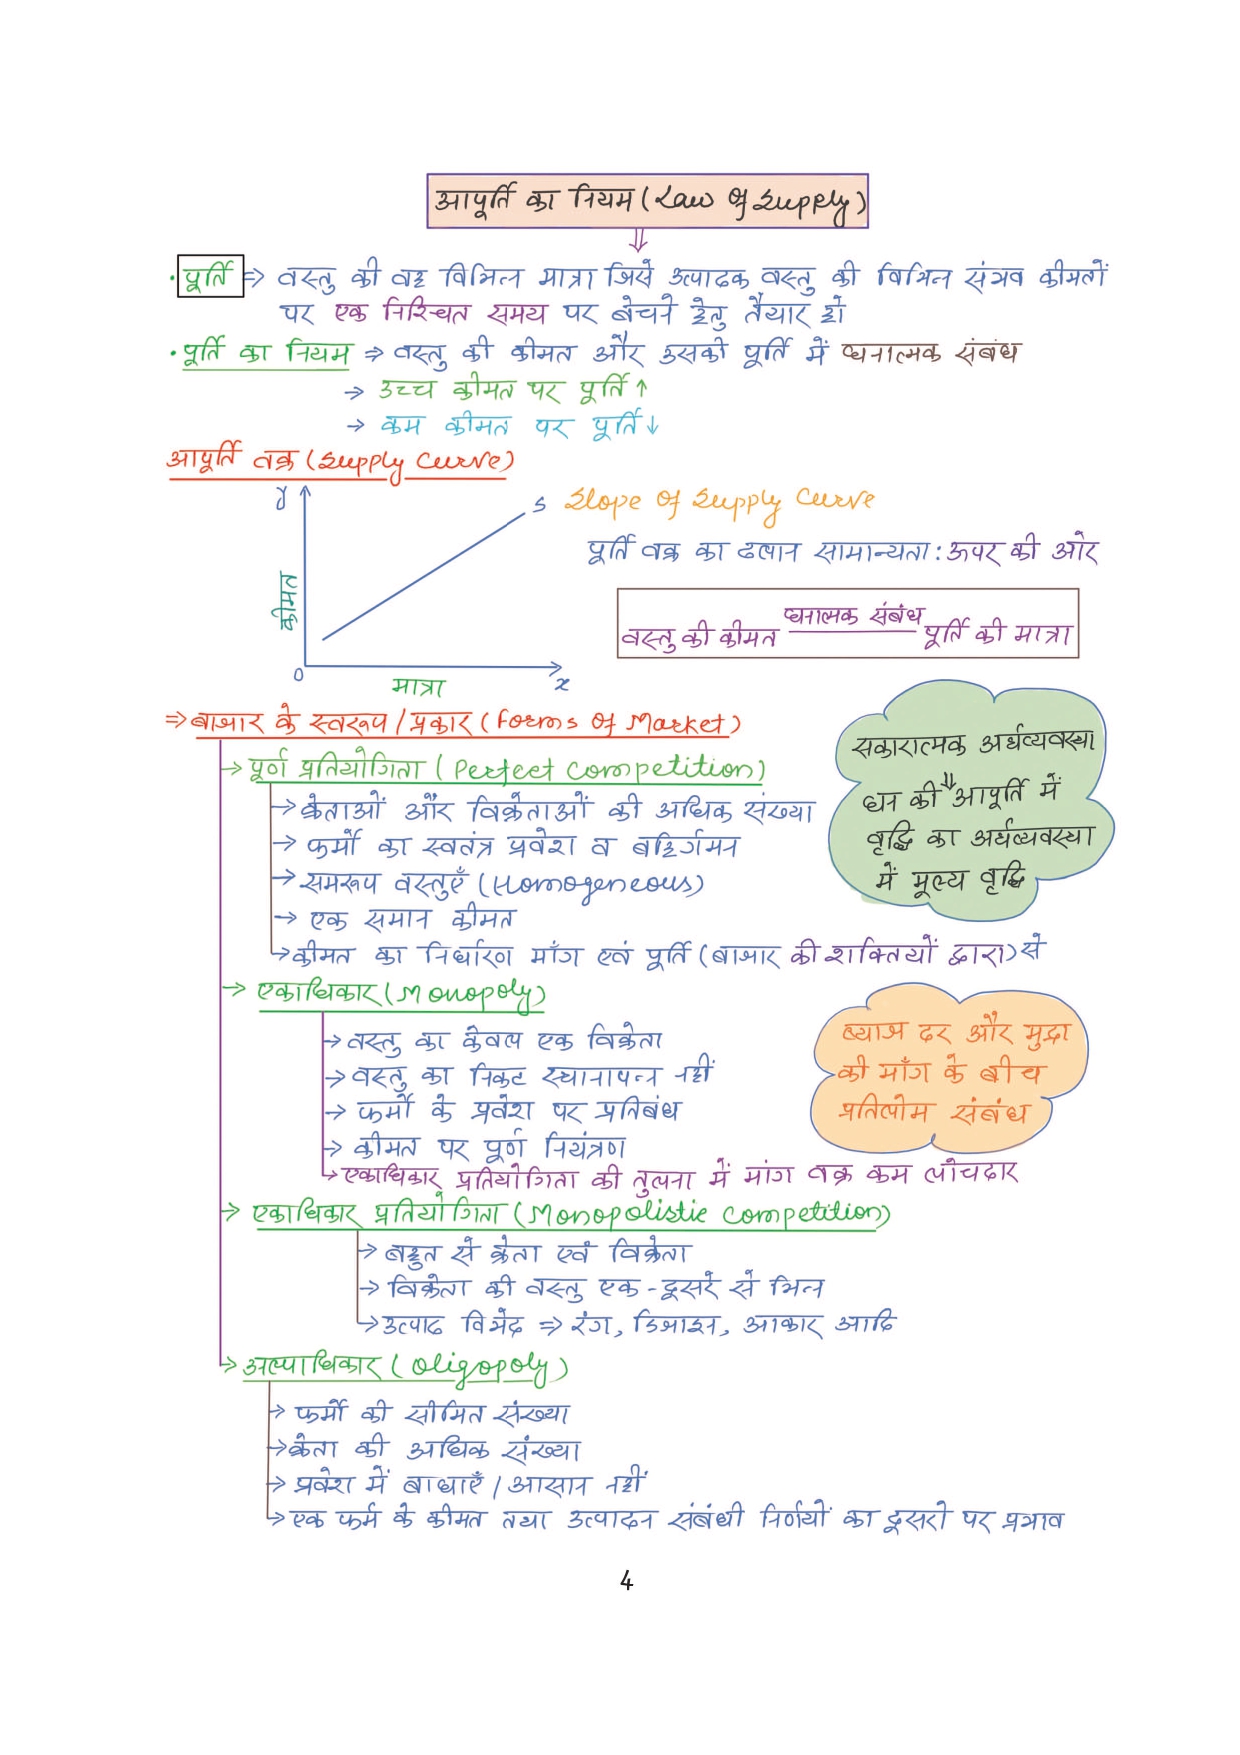 आपूर्ति का नियम (Law of Supply)
⇓
· पूर्ति ⇒ वस्तु की वह विभिन्न मात्रा जिसे उत्पादक वस्तु की विभिन्न संभव कीमतों
पर एक निश्चित समय पर बेचने हेतु तैयार हो
· पूर्ति का नियम ⇒ वस्तु की कीमत और उसकी पूर्ति में धनात्मक संबंध
→ उच्च कीमत पर पूर्ति ↑
→ कम कीमत पर पूर्ति ↓
आपूर्ति वक्र (Supply Curve)
y
S
Slope of Supply Curve
पूर्ति वक्र का ढलान सामान्यता: ऊपर की ओर
कीमत
वस्तु की कीमत धनात्मक संबंध पूर्ति की मात्रा
0
मात्रा
x
⇒ बाजार के स्वरूप / प्रकार (Forms of Market)
→ पूर्ण प्रतियोगिता (Perfect Competition)
→ क्रेताओं और विक्रेताओं की अधिक संख्या
→ फर्मों का स्वतंत्र प्रवेश व बहिर्गमन
→ समरूप वस्तुएँ (Homogeneous)
→ एक समान कीमत
→ कीमत का निर्धारण माँग एवं पूर्ति (बाजार की शक्तियों द्वारा) से
सकारात्मक अर्थव्यवस्था
⇓
धन की आपूर्ति में
वृद्धि का अर्थव्यवस्था
में मूल्य वृद्धि
→ एकाधिकार (Monopoly)
→ वस्तु का केवल एक विक्रेता
→ वस्तु का निकट स्थानापन्न नहीं
→ फर्मों के प्रवेश पर प्रतिबंध
→ कीमत पर पूर्ण नियंत्रण
→ एकाधिकार प्रतियोगिता की तुलना में मांग वक्र कम लोचदार
ब्याज दर और मुद्रा
की माँग के बीच
प्रतिलोम संबंध
→ एकाधिकार प्रतियोगिता (Monopolistic Competition)
→ बहुत से क्रेता एवं विक्रेता
→ विक्रेता की वस्तु एक-दूसरे से भिन्न
→ उत्पाद विभेद ⇒ रंग, डिजाइन, आकार आदि
→ अल्पाधिकार (Oligopoly)
→ फर्मों की सीमित संख्या
→ क्रेता की अधिक संख्या
→ प्रवेश में बाधाएँ / आसान नहीं
→ एक फर्म के कीमत तथा उत्पादन संबंधी निर्णयों का दूसरों पर प्रभाव
4